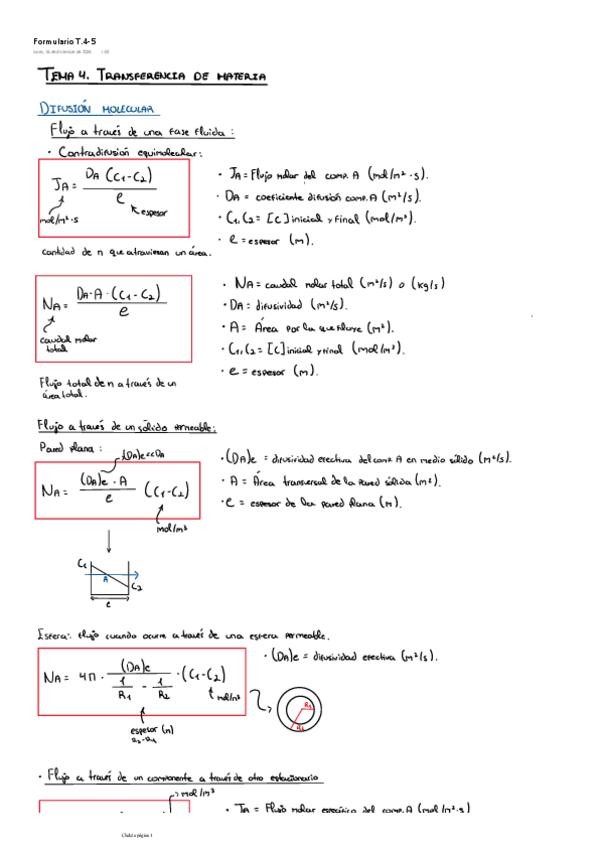 Formulario T.4-5
TEMA 4. TRANSFERENCIA DE MATERIA
DIFUSIÓN MOLECULAR
Flujo a través de una fase fluida:
· Contradifusión equimolecular:
J_A = D_A (C_1 - C_2) / e
mol/m²·s
espesor
· J_A = Flujo molar del comp. A (mol/m²·s).
· D_A = coeficiente difusión comp. A (m²/s).
· C_1, C_2 = [C] inicial y final (mol/m³).
· e = espesor (m).
cantidad de n que atraviesan un área.
N_A = D_A · A · (C_1 - C_2) / e
caudal molar
total
· N_A = caudal molar total (m³/s) o (kg/s)
· D_A = difusividad (m²/s).
· A = Área por la que fluye (m²).
· C_1, C_2 = [C] inicial y final (mol/m³).
· e = espesor (m).
Flujo total de n a través de un
área total.
Flujo a través de un sólido permeable:
Pared plana:
(D_A)e << D_A
N_A = (D_A)e · A / e (C_1 - C_2)
mol/m³
· (D_A)e = difusividad efectiva del comp. A en medio sólido (m²/s).
· A = Área transversal de la pared sólida (m²).
· e = espesor de la pared plana (m).
C_1
A
C_2
e
Esfera: flujo cuando ocurre a través de una esfera permeable.
N_A = 4π · (D_A)e / (1/R_1 - 1/R_2) · (C_1 - C_2)
mol/m³
espesor (m)
R_2 - R_1
· (D_A)e = difusividad efectiva (m²/s).
R_2
R_1
· Flujo a través de un componente a través de otro estacionario
mol/m³
· J_A = Flujo molar específico del comp. A (mol/m²·s)